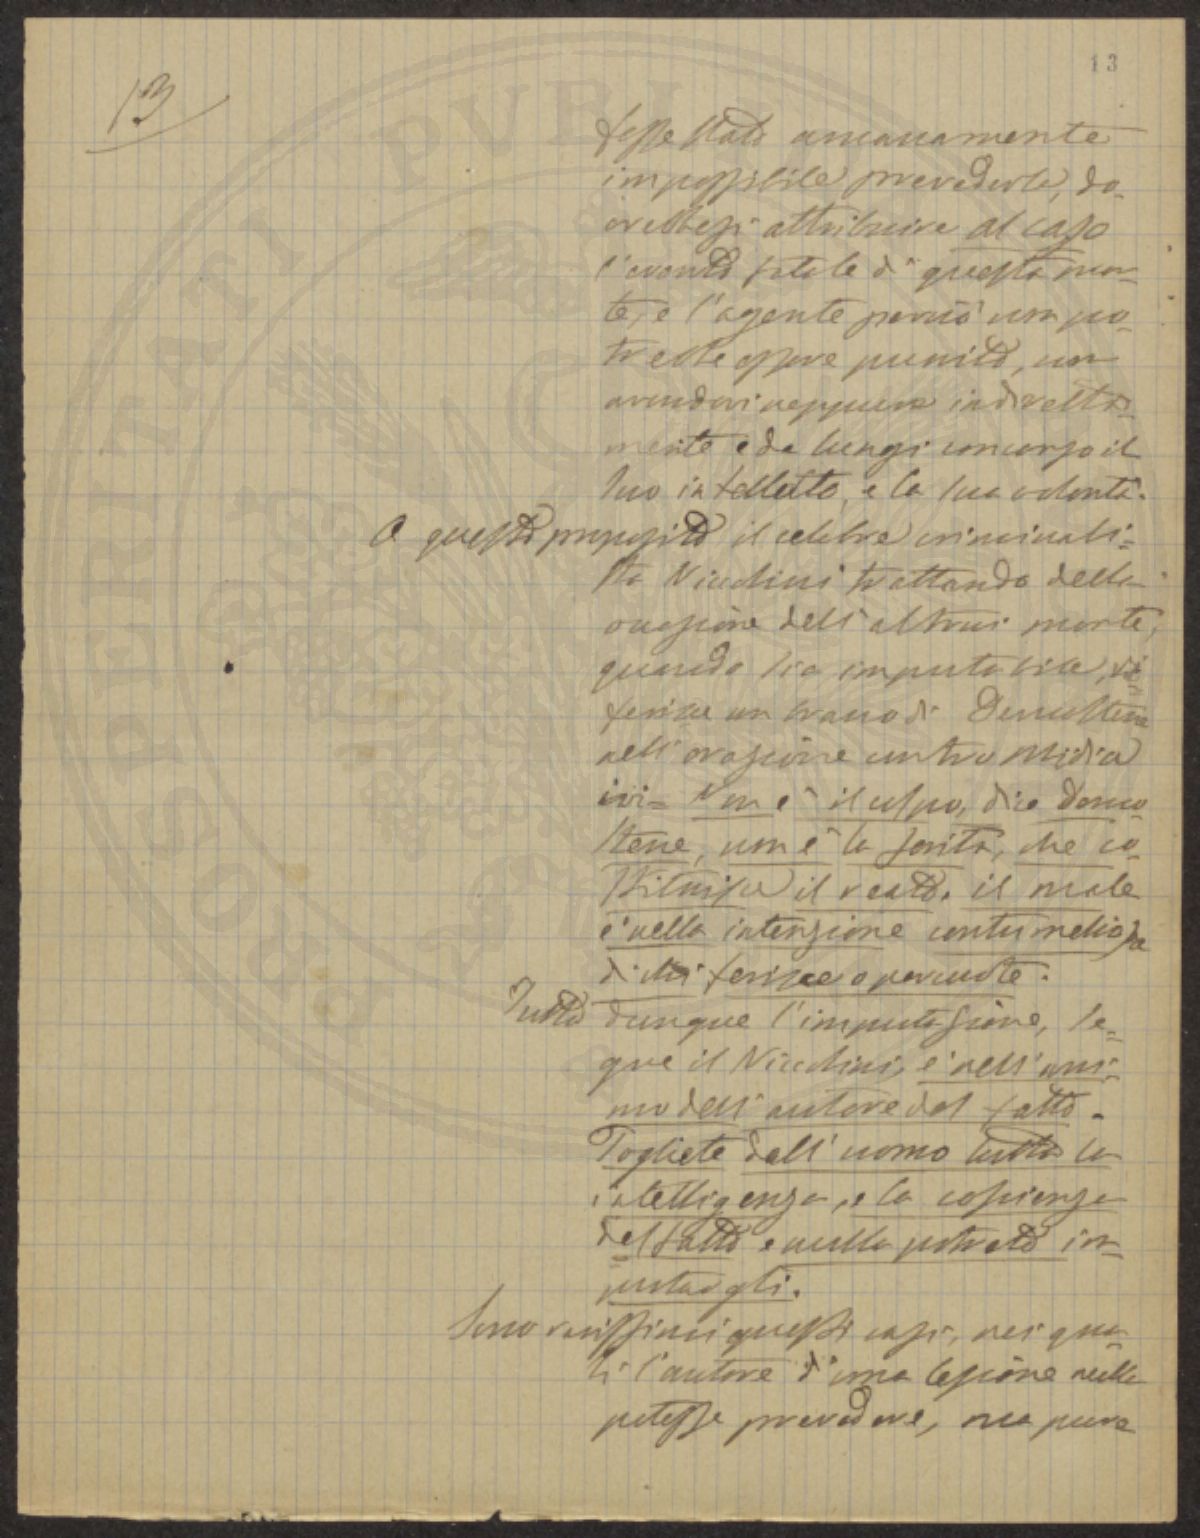 13
13
fosse stato umanamente
impossibile prevederla, do-
vrebbesi attribuire al caso
l'evento fatale di questa mor-
te, e l'agente perciò non po-
trebbe essere punito, non
avendovi neppure indiretta-
mente e da lungi concorso il
suo intelletto, e la sua volontà.
A questo proposito il celebre criminali-
sta Nicolini trattando della
cagione dell'altrui morte,
quando sia imputabile, ri-
ferisce un brano di Demostene
nell'orazione contro Midia
ivi= Non è il colpo, dice Demo-
stene, non è la ferita, che co-
stituisce il reato. il male
è nella intenzione contumeliosa
di chi ferisce o percuote.
Tutta dunque l'imputazione, se-
gue il Nicolini, è nell'ani-
mo dell'autore del fatto.
Togliete dall'uomo tutta la
intelligenza, e la coscienza
del fatto e nulla potrete im-
putargli.
Sono rarissimi questi casi, nei qua-
li l'autore d'una lesione nulla
potesse prevedere, ma pure